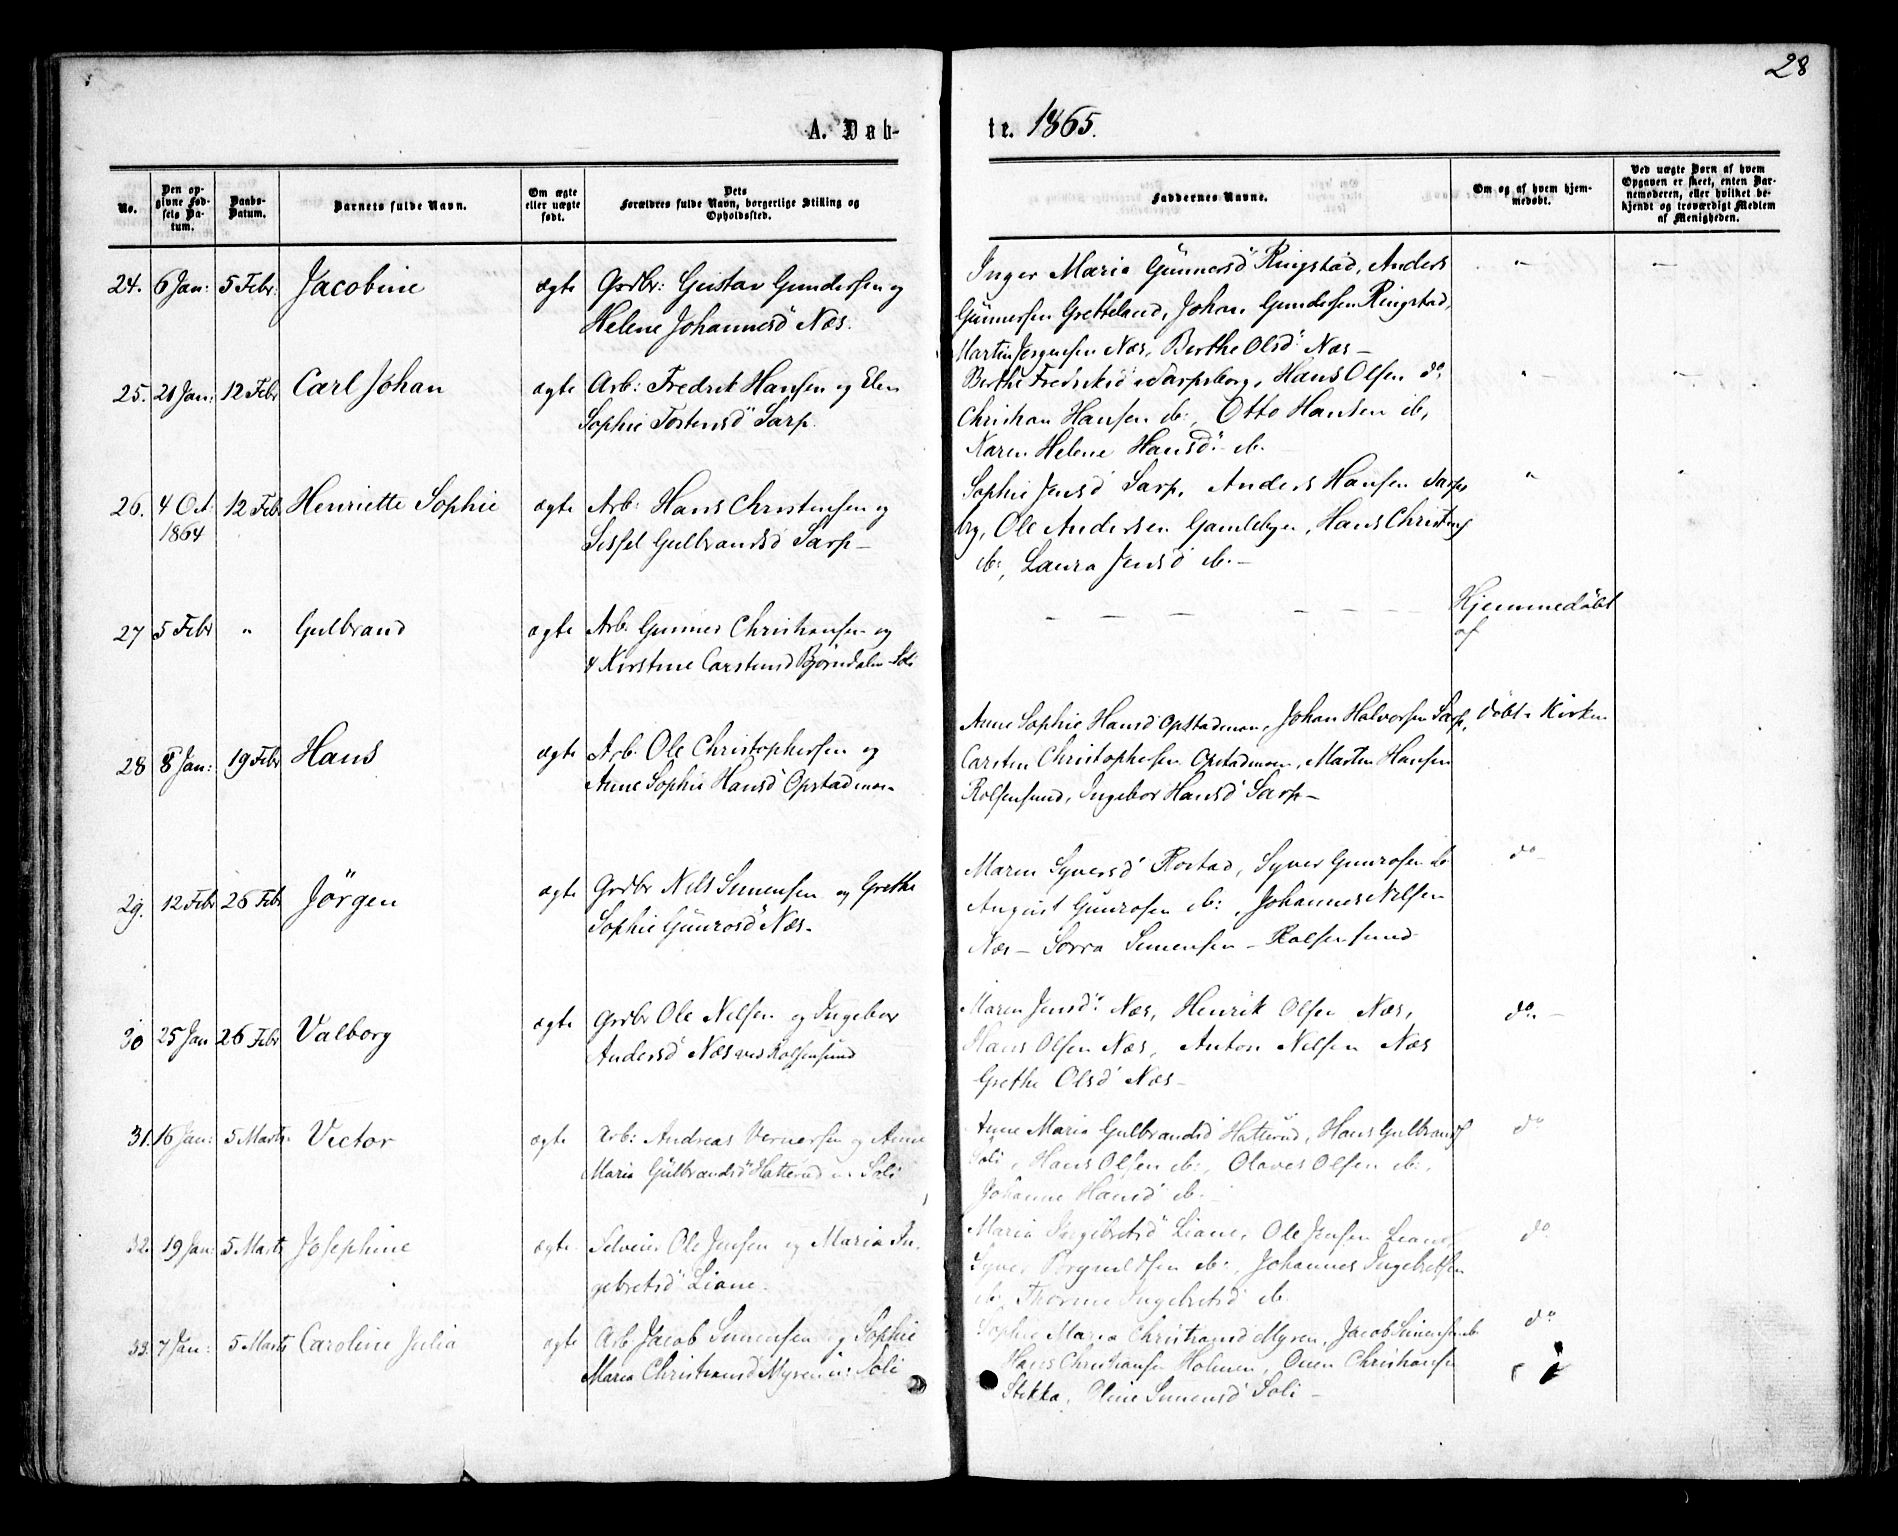 28
A. Døb-
te. 1865.
No.
Den op-
givne Fød-
sels Da-
tum.
Daabs-
Datum.
Barnets fulde Navn.
Om ægte
eller uægte
født.
Dets
Forældres fulde Navn, borgerlige Stilling og
Opholdssted.
Faddernes Navne.
Om og af hvem hjem-
medøbt.
Ved uægte Børn af hvem
Opgaven er skeet, enten Bar-
nemoderen, eller hvilket be-
kjendt og troværdigt Medlem
af Menigheden.
24. 6 Jan: 5 Febr: Jacobine ægte Grdbr: Gustav Gundersen og
Helene Johannesd Næs.
Inger Marie Gunnersd Ringstad, Anders
Gunnersen Gretteland, Johan Gundersen Ringstad,
Martin Jørgensen Næs, Berthe Olsd Næs –
25. 21 Jan: 12 Febr Carl Johan ægte Arb: Fredrik Hansen og Elen
Sophie Tostensd Sarp.
Berthe Fredriksd Sarpsborg, Hans Olsen do
Christian Hansen ib:, Otto Hansen ib,
Karen Helene Hansd ib.
26. 4 Oct 1864 12 Feb Henriette Sophie ægte Arb: Hans Christensen og
Sissel Gulbrandsd Sarp –
Sophie Jensd Sarp, Anders Hansen Sarps
brg, Ole Andersen Gamlebyen, Hans Christens
ib:, Laura Jensd ib. –
27 5 Febr " Gulbrand ægte Arb. Gunner Christiansen og
Kirstine Carstensd Bjørndalen Soli
Hjemmedøbt
af
28 8 Jan: 19 Febr Hans ægte Arb. Ole Christophersen og
Anne Sophie Hansd Opstadmoen
Anne Sophie Hansd Opstadmoen, Johan Halvorsen Sarp, døbt i Kirken
Carsten Christophersen Opstadmoen, Martin Hansen
Rolfsensund, Ingebor Hansd Sarp –
29. 12 Febr 26 Febr Jörgen ægte Grdbr Nils Simensen og Grethe
Sophie Gunrosd Næs –
Maren Syversd Rostad, Syver Gunrosen ib
August Gunrosen ib:, Johannes Nilsen
Næs – Simensen – Rolfsensund
do
30 25 Jan 26 Febr Valborg ægte Grdbr Ole Nilsen og Ingebor
Andersd Næs ved Rolfsensund
Maren Jensd Næs, Henrik Olsen Næs,
Hans Olsen Næs, Anton Nilsen Næs
Grethe Olsd Næs –
do –
31. 16 Jan: 5 Marts Victor ægte Arb: Andreas Vernersen og Anne
Maria Gulbrandsd Hatterud u. Soli
Anne Maria Gulbrandsd Hatterud, Hans Gulbrands
Soli, Hans Olsen ib:, Olaves Olsen ib:,
Johanne Hansd ib. –
do
32. 19 Jan: 5 Marts Josephine ægte Selveier Ole Jensen og Maria In-
gebretsd Liane.
Maria Ingebretsd Liane, Ole Jensen Liane,
Syver ib:, Johannes Ingebretsen
ib, Thorine Ingebretsd ib.
do
33. 7 Jan: 5 Marts Caroline Julia ægte Arb: Jacob Simensen og Sophie
Maria Christiansd Myren u: Soli
Sophie Maria Christiansd Myren, Jacob Simensen ib
Hans Christiansen Holmen, Christiansen
Stikka, Oline Simensd Soli –
do